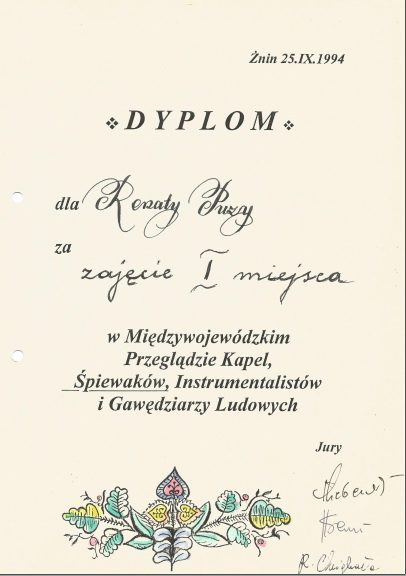 Żnin 25.IX.1994
❖ DYPLOM ❖
dla Renaty Puzy
za
zajęcie I miejsca
w Międzywojewódzkim
Przeglądzie Kapel,
Śpiewaków, Instrumentalistów
i Gawędziarzy Ludowych
Jury